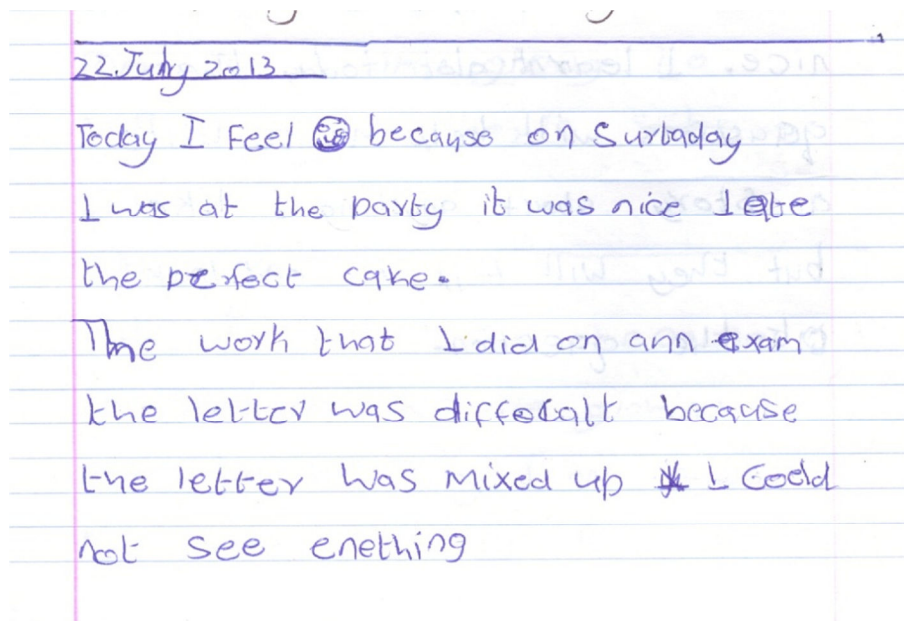 22.July 2013
Today I Feel because on Surtaday
I was at the party it was nice I ate
the perfect cake.
The work that I did on ann exam
the letter was diffecalt because
the letter was mixed up I Coeld
not see enething